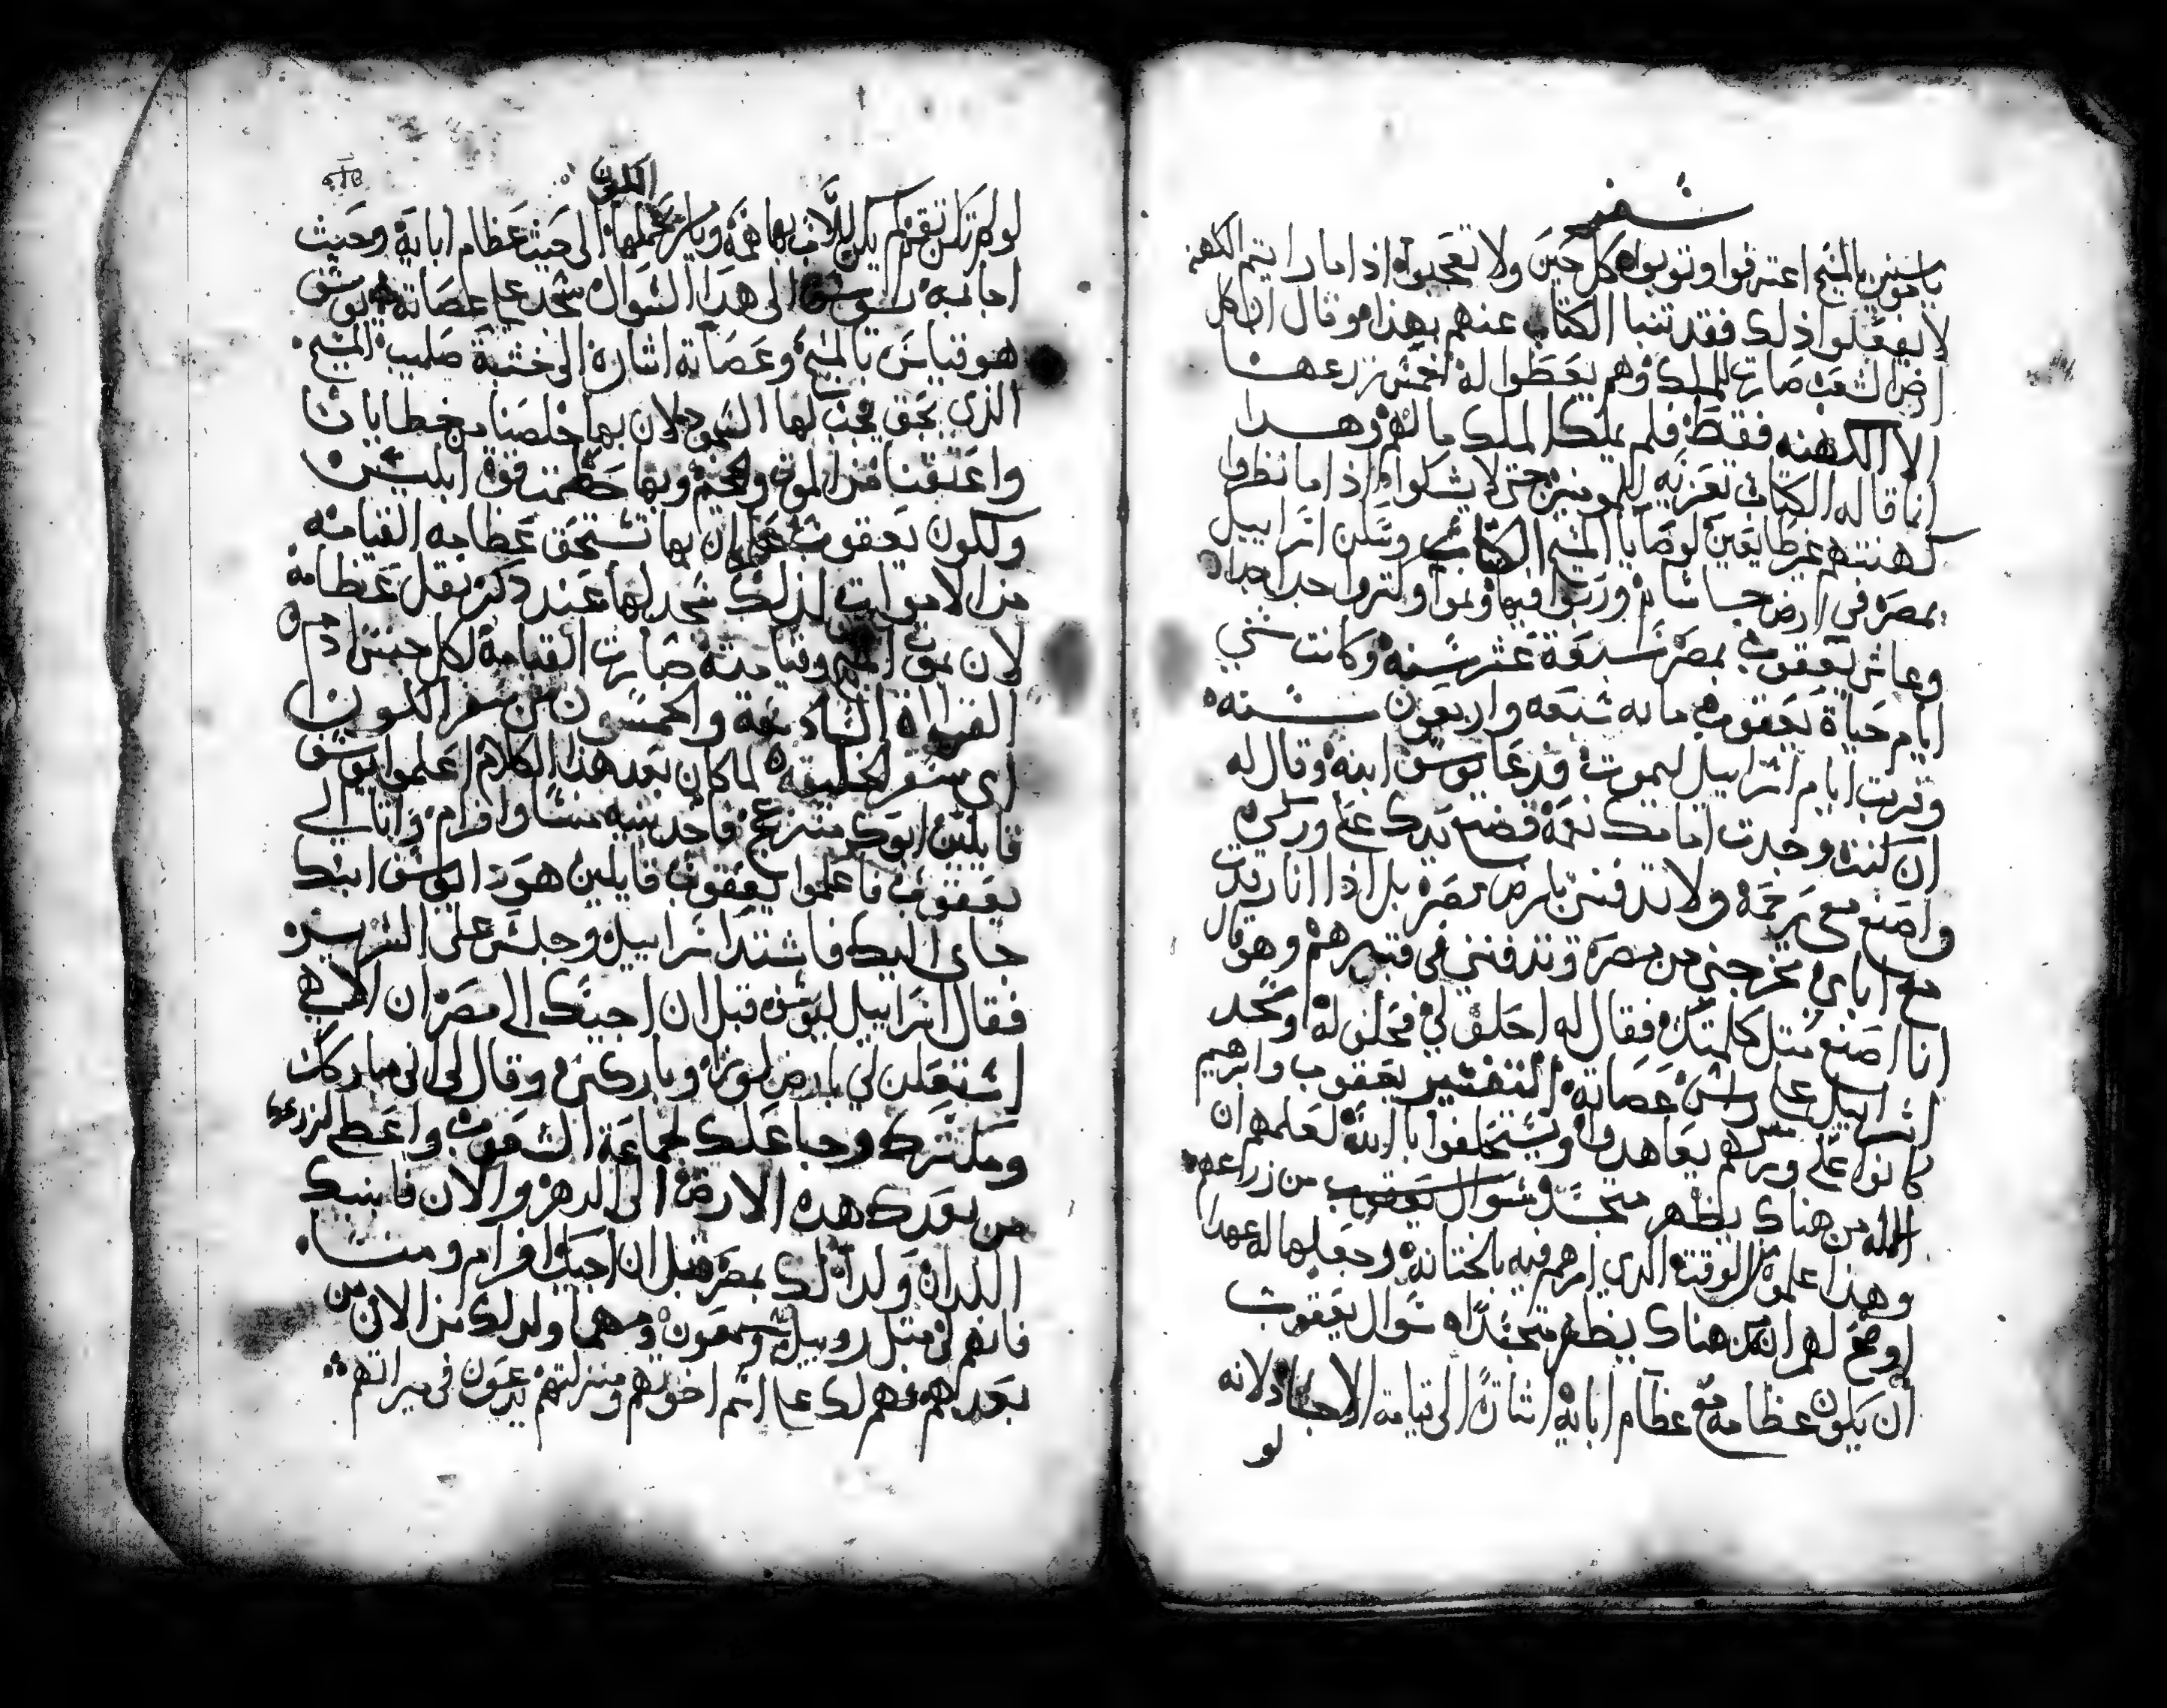 سفر
يا مومنين بالمسيح اعترفوا وتوبوا كل حين ولا تعجبوا اذا ما رايتم الكهنه
لا يفعلوا ذلك فقد تنبا الكتاب عنهم بهذا وقال ان كل
ارض الشعب صارت للملك وهم يعطوا له خمس زرعهنا
الا الكهنه فقط فلم يملك الملك مالهم وهدا
انما قاله الكتاب تعزيه للمومنين حتى لا يشكوا اذا ما نظروا
كهنتهم غير طايعين لوصايا المسيح الكتاب وسكن اسراييل
بمصر في ارض جاسان وورثوا فيها ونموا وكتروا جدا جدا
وعاش يعقوب بمصر سبعة عشر سنه وكانت سني
ايام حياة يعقوب مايه سبعه واربعون سنه
وقربت ايام اسراييل ليموت فدعا يوسف ابنه وقال له
ان كنت وجدت امامك نعمة فضع يدك على وركي
واصنع معي رحمة ولا تدفني بارض مصر بل اذا انا رقدت
مع اباي تخرجني من مصر وتدفنني في قبرهم وهو قال
انا اصنع متل كلمتك فقال له احلف لي فحلف له وسجد
اسراييل على راس عصاته التفسير يعقوب وابرهيم
كانوا على وركهم يعاهدوا ويستحلفوا بالله لعلمهم ان
الله من هناك يظهر متجسد وسوال يعقوب من زراعهم
وهذا علموه الوقت الدي ابرهم فيه بالختانه وجعلها له عهدا
اوضح لهم انه من هناك يظهر متجسدا سوال يعقوب
ان يكون عظامه مع عظام ابايه اشارة الى قيامة الاجساد لانه
لو
التكوين
لو لم تكن تقوم لم يكن للاب بها همه ويامر بحملها الى حيث عظام ابايه وحيث
اجابه يوسف الى هدا السوال سجد على عصاته يوسف
هو قياس بالمسيح وعصاته اشاره الى خشبة صليب المسيح
الذي بحق يجب لها السجود لان بها خلصنا من خطايانا
واعتقنا من الموت والجحيم وبها حطمت قوة ابليس
ولكون يعقوب علم ان بها تستحق عظامه القيامه
من الاموات لذلك سجد لها عند ذكره نقل عظامه
لان بموت المسيح وقيامته صارت القيامة لكل جنس ادم
القراه السادسة والخمسون من سفر الكون
اي سفر الخليقه لما كان بعد هذا الكلام اعلموا يوسف
قايلين ابوك منزعج فاخد بنيه منسا وافرام واتا الى
يعقوب فاعلموا يعقوب قايلين هودا يوسف ابنك
جاى اليك فاشتد اسراييل وجلس على السرير
فقال اسراييل ليوسف قبل ان اجيك الى مصر ان الاهي
استعلن لي بارض لوزا وباركني وقال لي اني مباركك
ومكترك وجاعلك لجماعة الشعوب واعطي لزرعك
من بعدك هده الارض الى الدهر والان فابنيك
اللدان ولدا لك بمصر قبل ان اجيك افرام ومنسا
فانهم لي متل روبيل وسمعون ومهما ولد لك من الان من
بعدهم فهم لك على اسم اخوتهم ومنزلتهم يدعون في ميراتهم